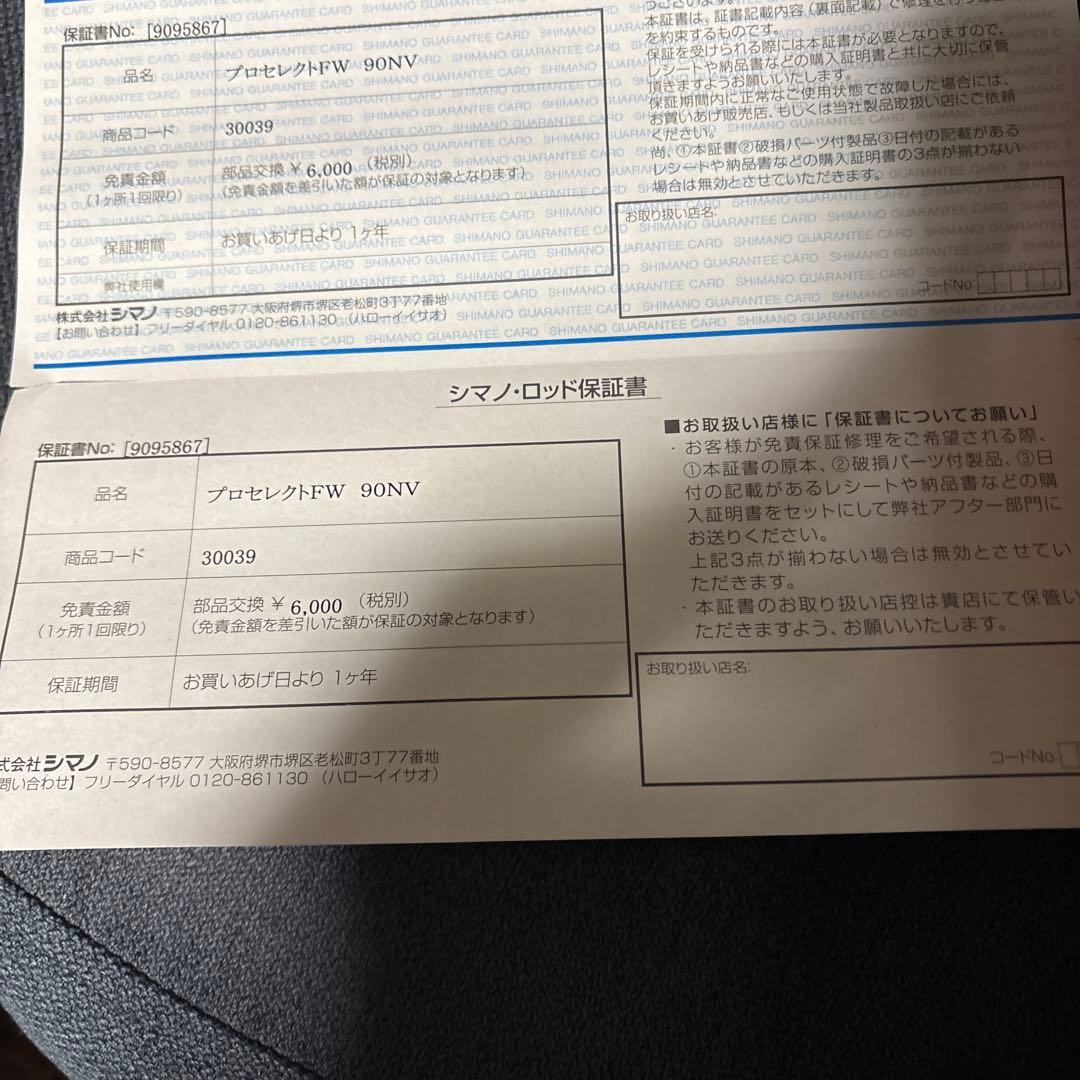 保証書No: [9095867]
品名 プロセレクトFW 90NV
商品コード 30039
免責金額 部品交換 ¥ 6,000 (税別)
(1ヶ所1回限り) (免責金額を差引いた額が保証の対象となります)
保証期間 お買いあげ日より 1ヶ年
弊社使用欄
株式会社シマノ 〒590-8577 大阪府堺市堺区老松町3丁77番地
【お問い合わせ】フリーダイヤル 0120-861130 (ハローイイサオ)
本証書は、証書記載内容(裏面記載)で修理を行うこと
を約束するものです。
保証を受けられる際には本証書が必要となりますので、
レシートや納品書などの購入証明書と共に大切に保管
頂きますようお願いいたします。
保証期間内に正常なご使用状態で故障した場合には、
お買いあげ販売店、もしくは当社製品取扱い店にご依頼
ください。
尚、①本証書②破損パーツ付製品③日付の記載がある
レシートや納品書などの購入証明書の3点が揃わない
場合は無効とさせていただきます。
お取り扱い店名:
コードNo:
SHIMANO GUARANTEE CARD
シマノ・ロッド保証書
保証書No: [9095867]
品名 プロセレクトFW 90NV
商品コード 30039
免責金額 部品交換 ¥ 6,000 (税別)
(1ヶ所1回限り) (免責金額を差引いた額が保証の対象となります)
保証期間 お買いあげ日より 1ヶ年
式会社シマノ 〒590-8577 大阪府堺市堺区老松町3丁77番地
問い合わせ】フリーダイヤル 0120-861130 (ハローイイサオ)
■お取扱い店様に「保証書についてお願い」
・お客様が免責保証修理をご希望される際、
①本証書の原本、②破損パーツ付製品、③日
付の記載があるレシートや納品書などの購
入証明書をセットにして弊社アフター部門に
お送りください。
上記3点が揃わない場合は無効とさせてい
ただきます。
・本証書のお取り扱い店控は貴店にて保管い
ただきますよう、お願いいたします。
お取り扱い店名:
コードNo: